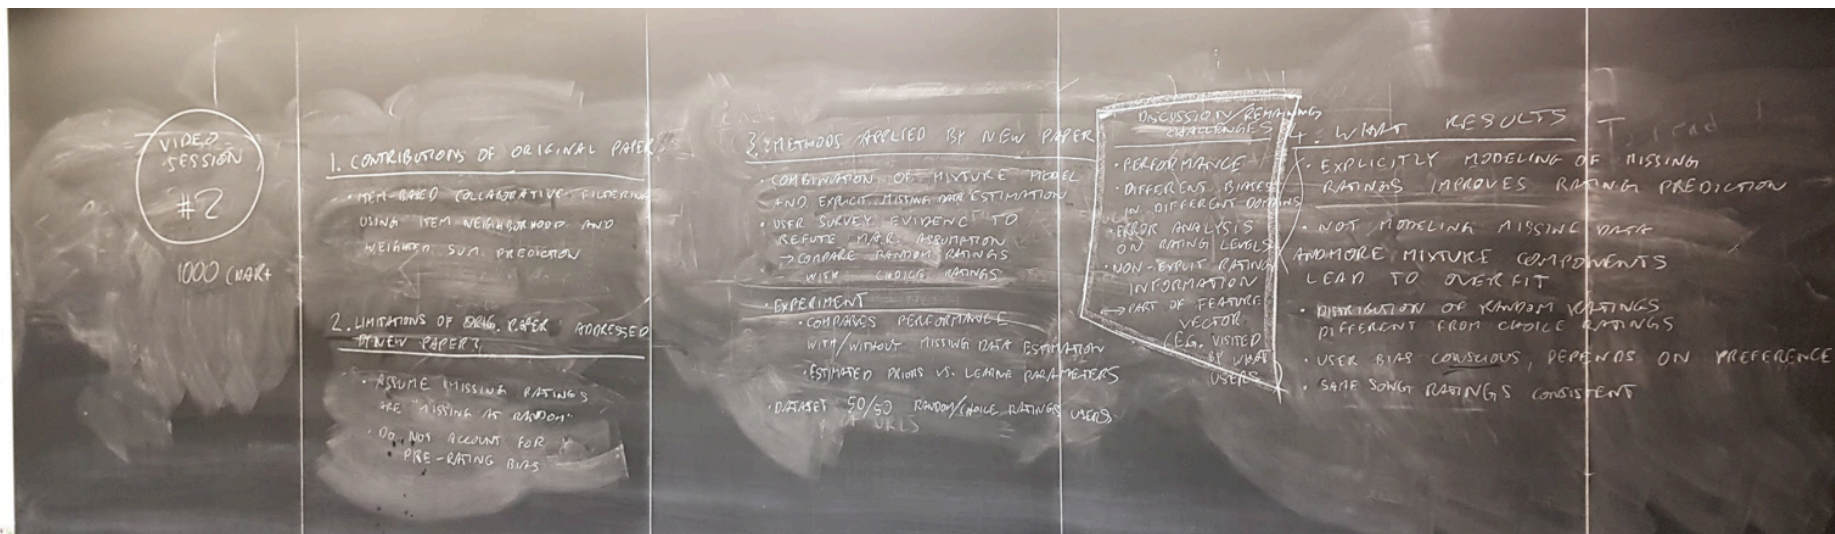 VIDEO
SESSION
#2
1000 CHAR
1. CONTRIBUTIONS OF ORIGINAL PAPER
• ITEM-BASED COLLABORATIVE FILTERING
USING ITEM NEIGHBORHOOD AND
WEIGHTED SUM PREDICTION
2. LIMITATIONS OF ORIG. PAPER ADDRESSED
NEW PAPER?
• ASSUME MISSING RATINGS
ARE "MISSING AT RANDOM"
• DO NOT ACCOUNT FOR
PRE-RATING BIAS
3. METHODS APPLIED BY NEW PAPER
• COMBINATION OF MIXTURE MODEL
AND EXPLICIT MISSING DATA ESTIMATION
• USER SURVEY EVIDENCE TO
REFUTE M.A.R. ASSUMPTION
→ COMPARE RANDOM RATINGS
WITH CHOICE RATINGS
• EXPERIMENT
• COMPARES PERFORMANCE
WITH/WITHOUT MISSING DATA ESTIMATION
• ESTIMATED PRIORS VS. LEARNE PARAMETERS
• DATASET 50/50 RANDOM/CHOICE RATINGS USERS
DISCUSSION/REMAINING
CHALLENGES
• PERFORMANCE
• DIFFERENT BIASES
IN DIFFERENT DOMAINS
• ERROR ANALYSIS
ON RATING LEVELS
• NON-EXPLICIT RATING
INFORMATION
→ PART OF FEATURE
VECTOR
(E.G. VISITED
BY WHAT
USERS
4. WHAT RESULTS
• EXPLICITLY MODELING OF MISSING
RATINGS IMPROVES RATING PREDICTION
• NOT MODELING MISSING DATA
AND MORE MIXTURE COMPONENTS
LEAD TO OVERFIT
• DISTRIBUTION OF RANDOM RATINGS
DIFFERENT FROM CHOICE RATINGS
• USER BIAS CONSCIOUS, DEPENDS ON PREFERENCE
• SAME SONG RATINGS CONSISTENT